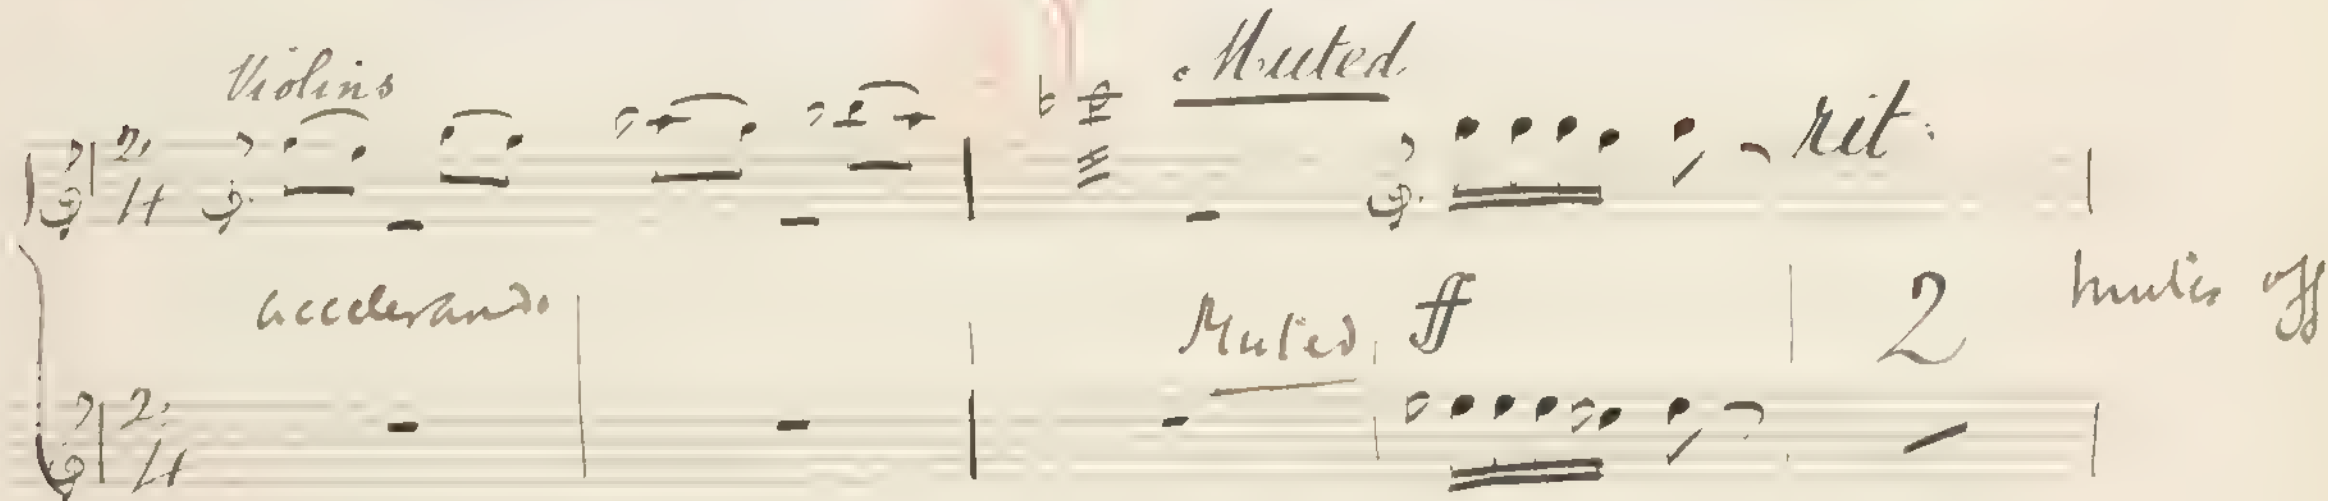 Violins
Muted.
2
4
rit.
accelerando
Muted
ff
2
mutes off
2
4